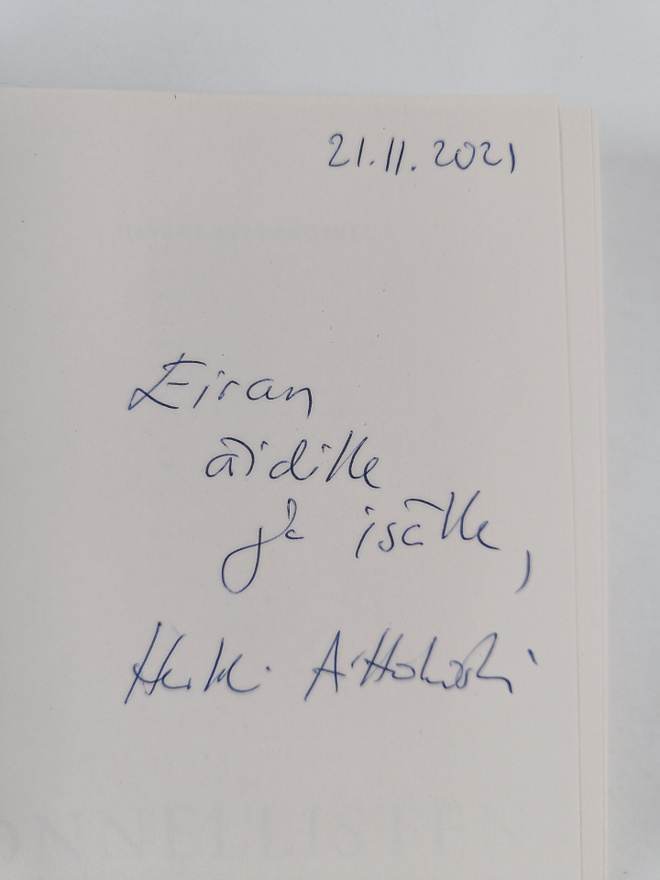 21.11.2021
Eiran
äidille
ja isälle,
Heikki Aittokoski
ONNELLISTEN